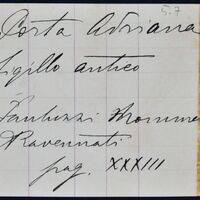 5.7
Porta Adriana
Sigillo antico
Fantuzzi Monume
Ravennati
pag. XXXIII